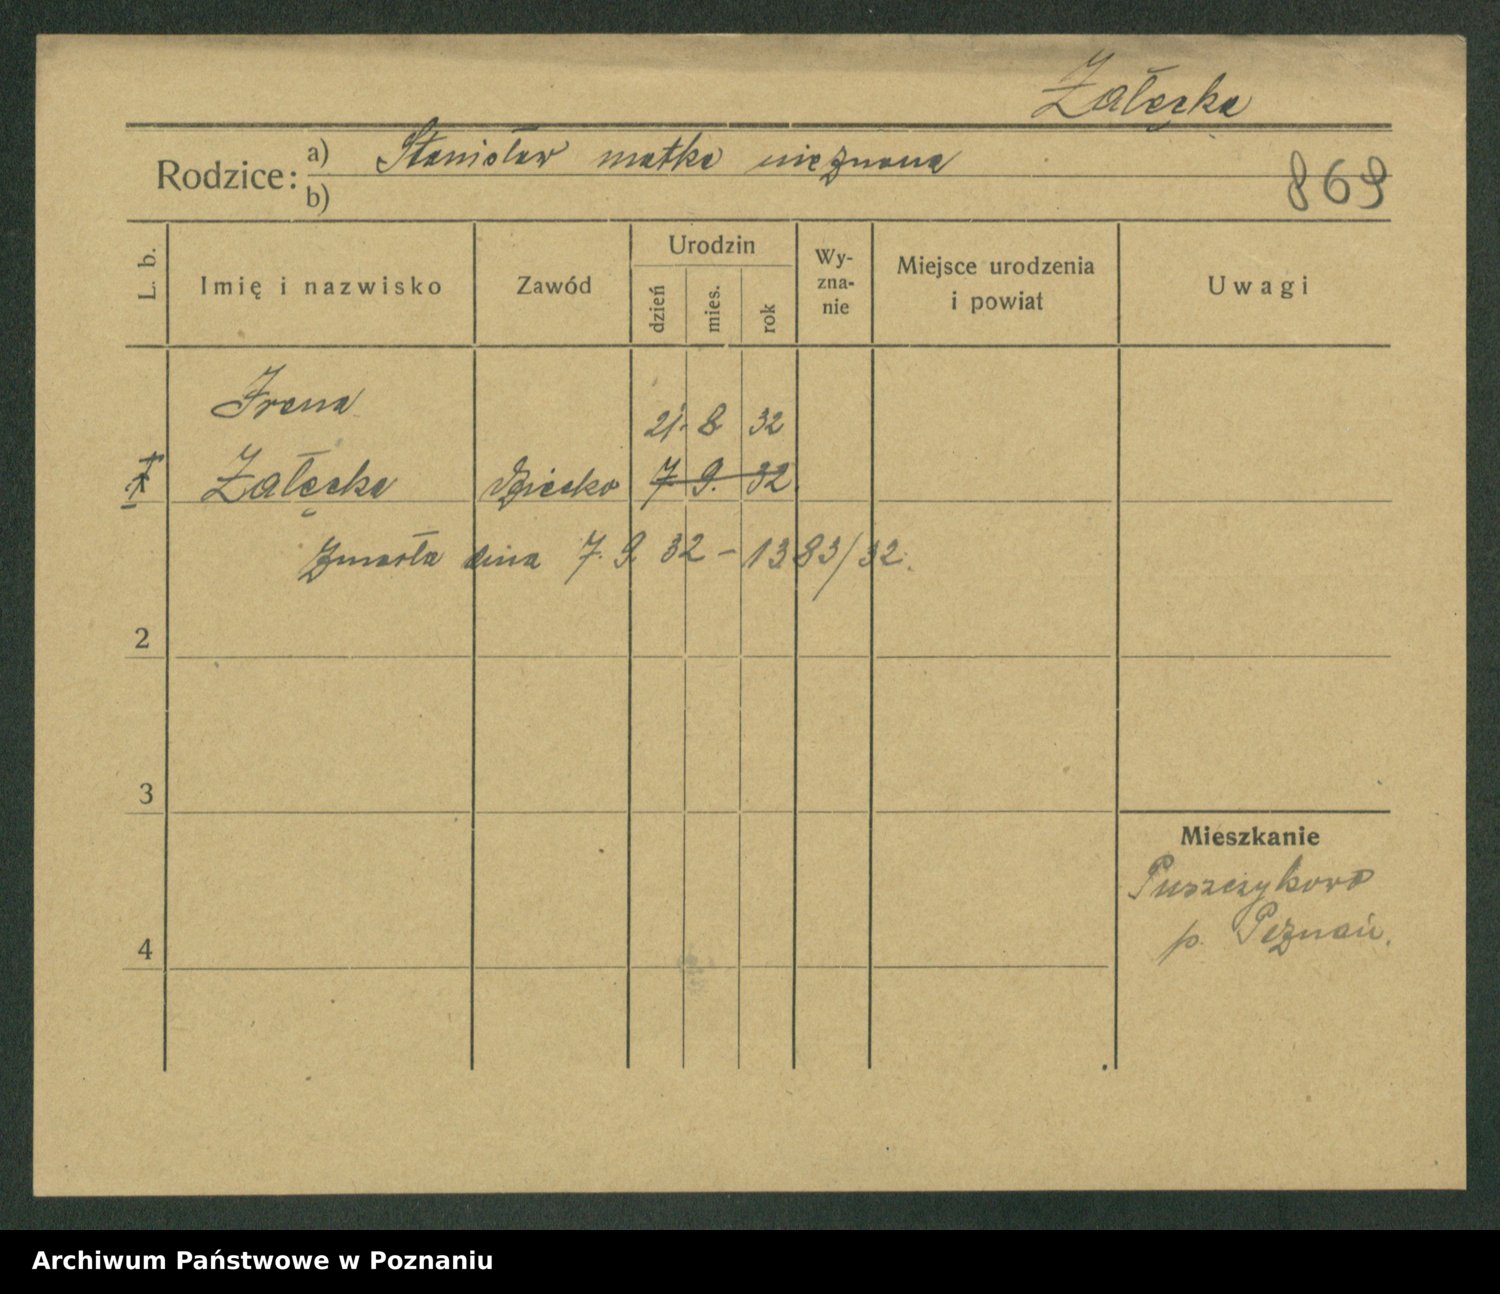 Załęcka
Rodzice: a) Stanisław matka nieznana
b)
869
L. b.
Imię i nazwisko
Zawód
Urodzin
dzień
mies.
rok
Wy-
zna-
nie
Miejsce urodzenia
i powiat
Uwagi
Irena
21. 8 32
Załęcka Dziecko 7 9. 32.
Zmarła dnia 7. 9 32 – 1383/32.
2
3
Mieszkanie
Puszczykowo
p. Poznań.
4
Archiwum Państwowe w Poznaniu